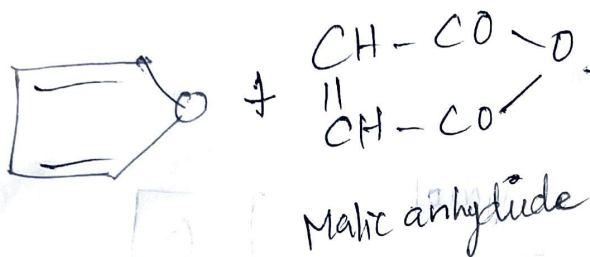 CH - CO
O
+ O
||
CH - CO
Malic anhydride